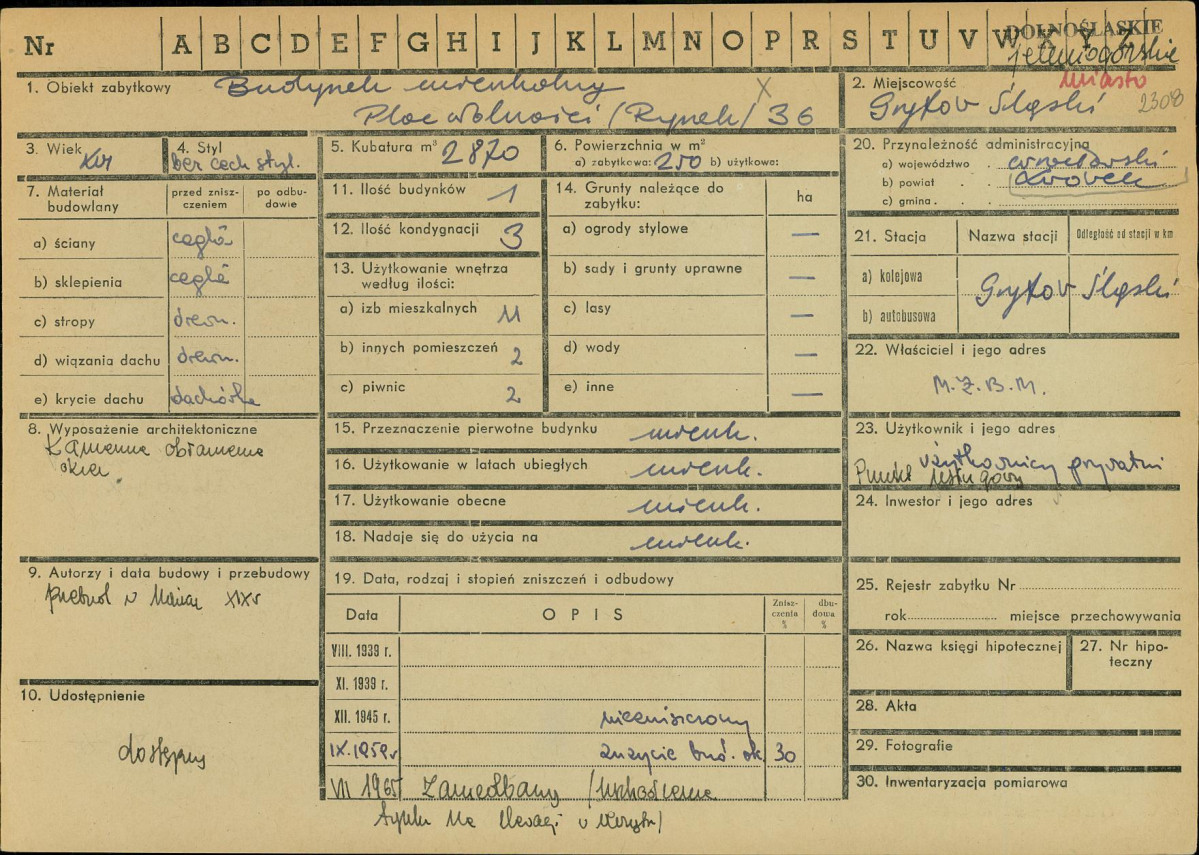 Nr A B C D E F G H I J K L M N O P R S T U V W X Y Z
DOLNOŚLĄSKIE
jeleniogórskie
miasto
2308
1. Obiekt zabytkowy Budynek mieszkalny
Plac Wolności /Rynek/ 36
2. Miejscowość
Gryfów Śląski
3. Wiek XVI
4. Styl
bez cech styl.
5. Kubatura m³ 2870
6. Powierzchnia w m²
a) zabytkowa: 250 b) użytkowa:
7. Materiał budowlany
przed zniszczeniem
po odbudowie
a) ściany cegła
b) sklepienia cegła
c) stropy drewn.
d) wiązania dachu drewn.
e) krycie dachu dachówka
11. Ilość budynków 1
12. Ilość kondygnacji 3
13. Użytkowanie wnętrza
według ilości:
a) izb mieszkalnych 11
b) innych pomieszczeń 2
c) piwnic 2
14. Grunty należące do
zabytku:
ha
a) ogrody stylowe —
b) sady i grunty uprawne —
c) lasy —
d) wody —
e) inne —
20. Przynależność administracyjna
a) województwo wrocławskie
b) powiat Lwówek
c) gmina
21. Stacja
Nazwa stacji
Odległość od stacji w km
a) kolejowa
Gryfów Śląski
b) autobusowa
22. Właściciel i jego adres
M.Z.B.M.
8. Wyposażenie architektoniczne
Kamienne obramienia
okien
15. Przeznaczenie pierwotne budynku mieszk.
16. Użytkowanie w latach ubiegłych mieszk.
17. Użytkowanie obecne mieszk.
18. Nadaje się do użycia na mieszk.
23. Użytkownik i jego adres
użytkownicy prywatni
Punkt usługowy
24. Inwestor i jego adres
9. Autorzy i data budowy i przebudowy
przebud w końcu XIX w
10. Udostępnienie
dostępny
19. Data, rodzaj i stopień zniszczeń i odbudowy
Data
OPIS
Zniszczenia %
dbudowa %
VIII. 1939 r.
XI. 1939 r.
XII. 1945 r. niezniszczony
IX. 1959 r zużycie bud. ok 30
VII 1965 Zaniedbany
25. Rejestr zabytku Nr
rok miejsce przechowywania
26. Nazwa księgi hipotecznej
27. Nr hipoteczny
28. Akta
29. Fotografie
30. Inwentaryzacja pomiarowa